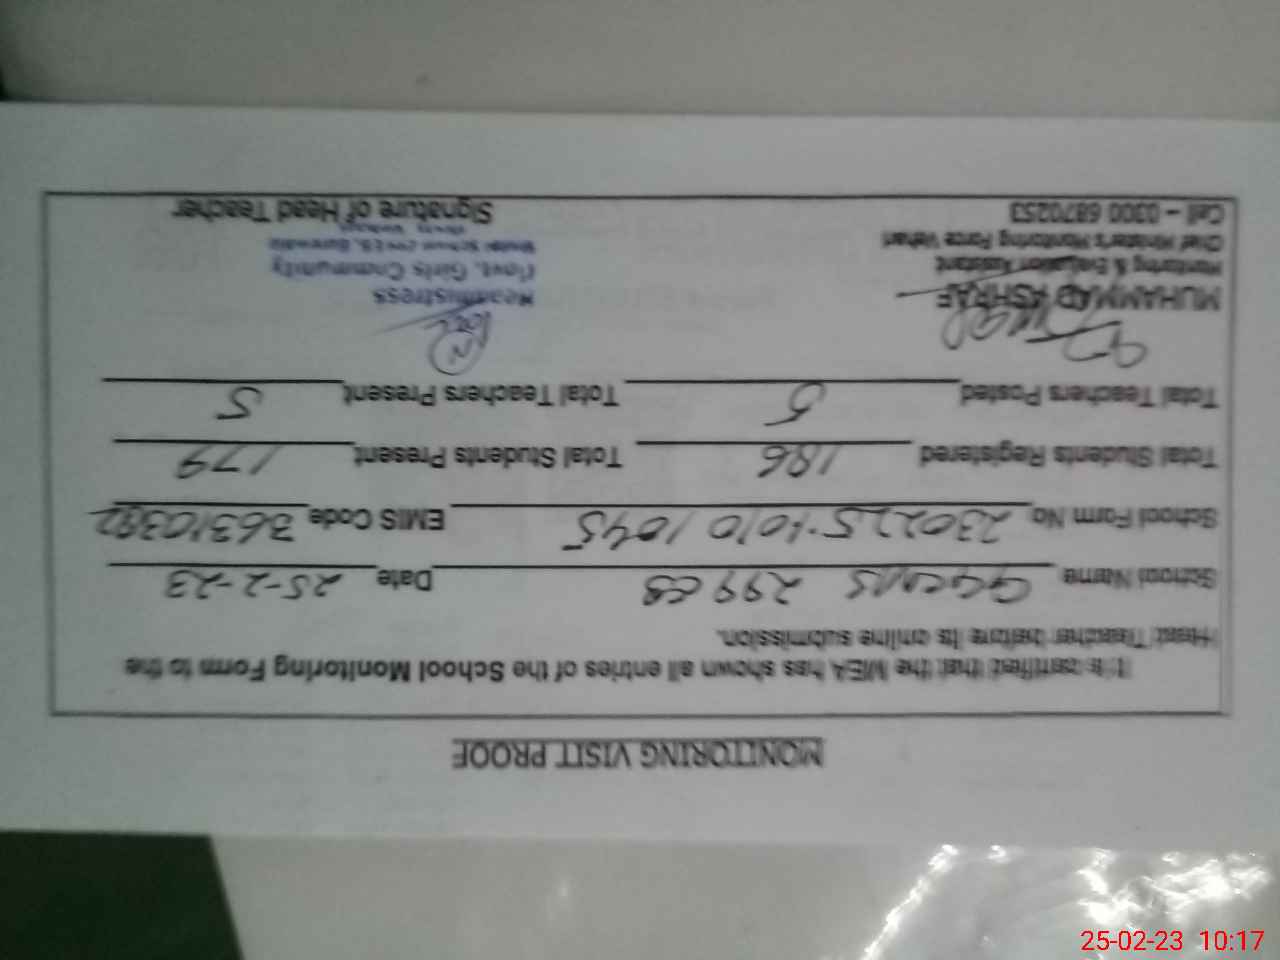 MONITORING VISIT PROOF
It is certified that the MEA has shown all entries of the School Monitoring Form to the
Head Teacher before its online submission.
School Name GGCMS 299 EB Date 25-2-23
School Form No 230225-1010 1045 EMIS Code 36310392
Total Students Registered 186 Total Students Present 179
Total Teachers Posted 5 Total Teachers Present 5
MUHAMMAD ASHRAF
Monitoring & Evaluation Assistant
Chief Minister's Monitoring Force Vehari
Cell - 0300 6870253
Headmistress
Govt. Girls Community
Model School 299 EB, Burewala
Signature of Head Teacher
25-02-23 10:17